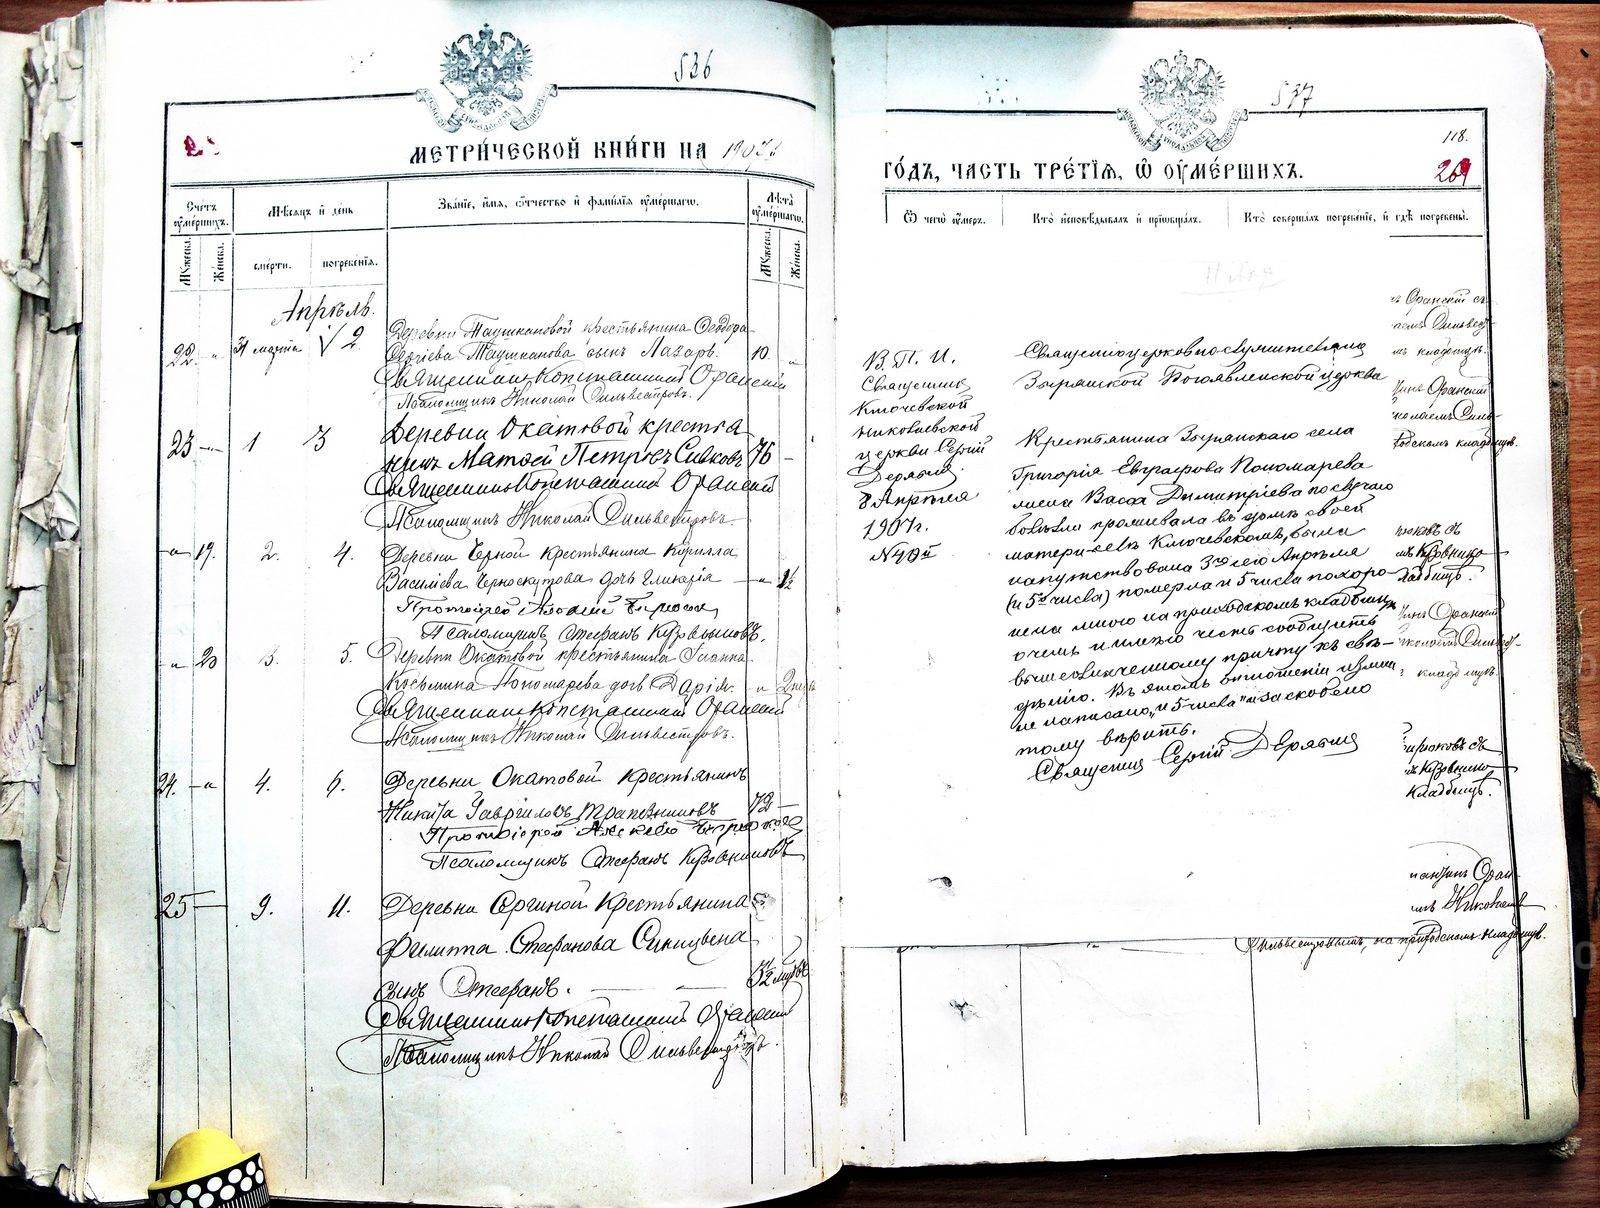 536
МЕТРИ́ЧЕСКОЙ КНИ́ГИ НА 1907
Сче́тъ ѹме́ршихъ.
Мѣсяцъ и день
Зва́нїе, имя, ѻтчество и фамилїя ѹмершагѡ.
Лѣта ѹмершагѡ.
Мужеска.
Женска.
сме́рти.
погребе́нїя.
Мужеска.
Женска.
Апрѣль.
22. 31 марта 2 Деревни Таушкановой крестьянина Ѳеодора
Сергіева Таушканова сынъ Лазарь. 10.
Священникъ Константинъ Оранскій
Псаломщикъ Николай Сильвестровъ.
23 1 3 Деревни Окатовой крестья
нинъ Матѳей Петровъ Сивковъ 76
Священникъ Константинъ Оранскій
Псаломщикъ Николай Сильвестровъ.
19. 2. 4. Деревни Черной крестьянина Кирилла
Василіева Черноскутова дочь Гликерія
Протоіерей Алексій Бирюковъ
Псаломщикъ Стефанъ Кузовниковъ.
20 3. 5. Деревни Окатовой крестьянина Іоанна
Космина Пономарева дочь Дарія. 2 нед
Священникъ Константинъ Оранскій
Псаломщикъ Николай Сильвестровъ.
24. 4. 6. Деревни Окатовой крестьянинъ
Никита Гавріиловъ Трапезниковъ 72
Протоіерей Алексій Бирюковъ
Псаломщикъ Стефанъ Кузовниковъ
25 9. 11. Деревни Сергиной Крестьянина
Филиппа Стефанова Синицына
сынъ Стефанъ.
Священникъ Константинъ Оранскій
Псаломщикъ Николай Сильвестровъ.
537
118.
269
ГО́ДЪ, ЧАСТЬ ТРЕ́ТЇЯ, Ѡ ОУМЕ́РШИХЪ.
Ѿ чегѡ ѹмеръ.
Кто исповѣдывалъ и прїѡбщалъ.
Кто совершалъ погребенїе, и гдѣ погребены.
В. П. И.
Священник
Ключевской
Николаевской
церкви Сергій
Дерябин
8 Апрѣля
1907 г.
№ 40й
Священноцерковнослужителямъ
Зырянской Богоявленской церкви
Крестьянина Зырянскаго села
Григорія Евграфова Пономарева
жена Васса Димитріева по случаю
болѣзни проживала въ домѣ своей
матери въ Ключевскомъ, была
напутствована 3го сего Апрѣля
(и 5го числа) померла и 5 числа похоро-
нена мною на приходскомъ кладбищѣ
о чемъ и имѣю честь сообщить
вышеозначенному причту къ свѣ-
дѣнію. Въ этомъ отношеніи
написано „и 5 числа" и заскоблено
тому вѣрить.
Священник Сергій Дерябин
ъ Оранскій съ
мъ кладбищѣ.
Оранскій
кладбищѣ.
Кузовнико
Оранскій
кладбищѣ.
Бирюковъ съ
Кузовнико
Кладбищѣ.
Сильвестровымъ, на приходскомъ кладбищѣ.